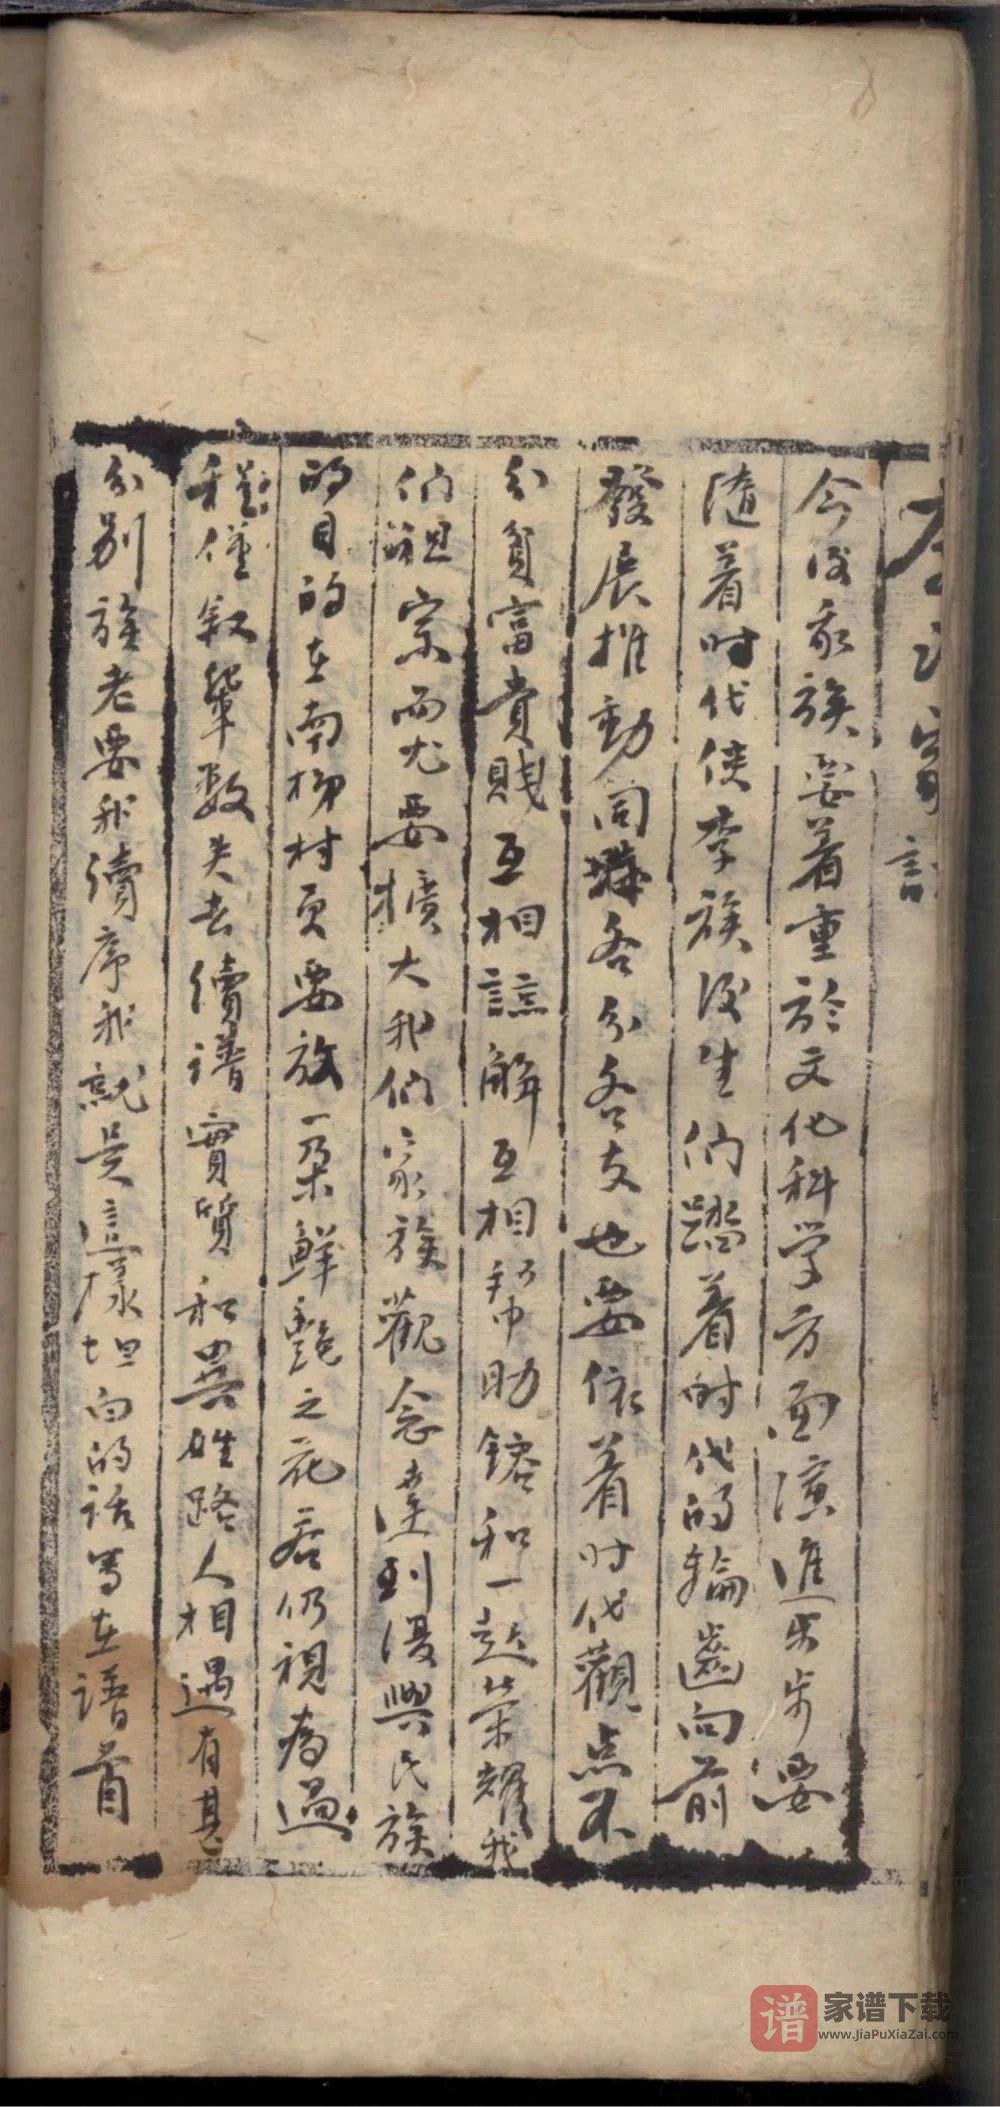 李氏家譜
今后我族要着重於文化科学方面演進步步要
随着时代使李族后生们踏着时代的輪齒向前
發展推動同時各分各支也要依着时代觀点不
分貧富貴賤互相諒解互相幇助鎔和一起荣耀我
们祖宗而尤要擴大我们家族觀念達到復興民族
的目的在南柳村更要放一朵鮮艷之花若仍視為過
程僅叙輩数失去續譜實質和異姓路人相遇有甚
分別族老要我續序我就是這樣坦白的话写在譜首
谱
家谱下载
www.JiaPuXiaZai.com